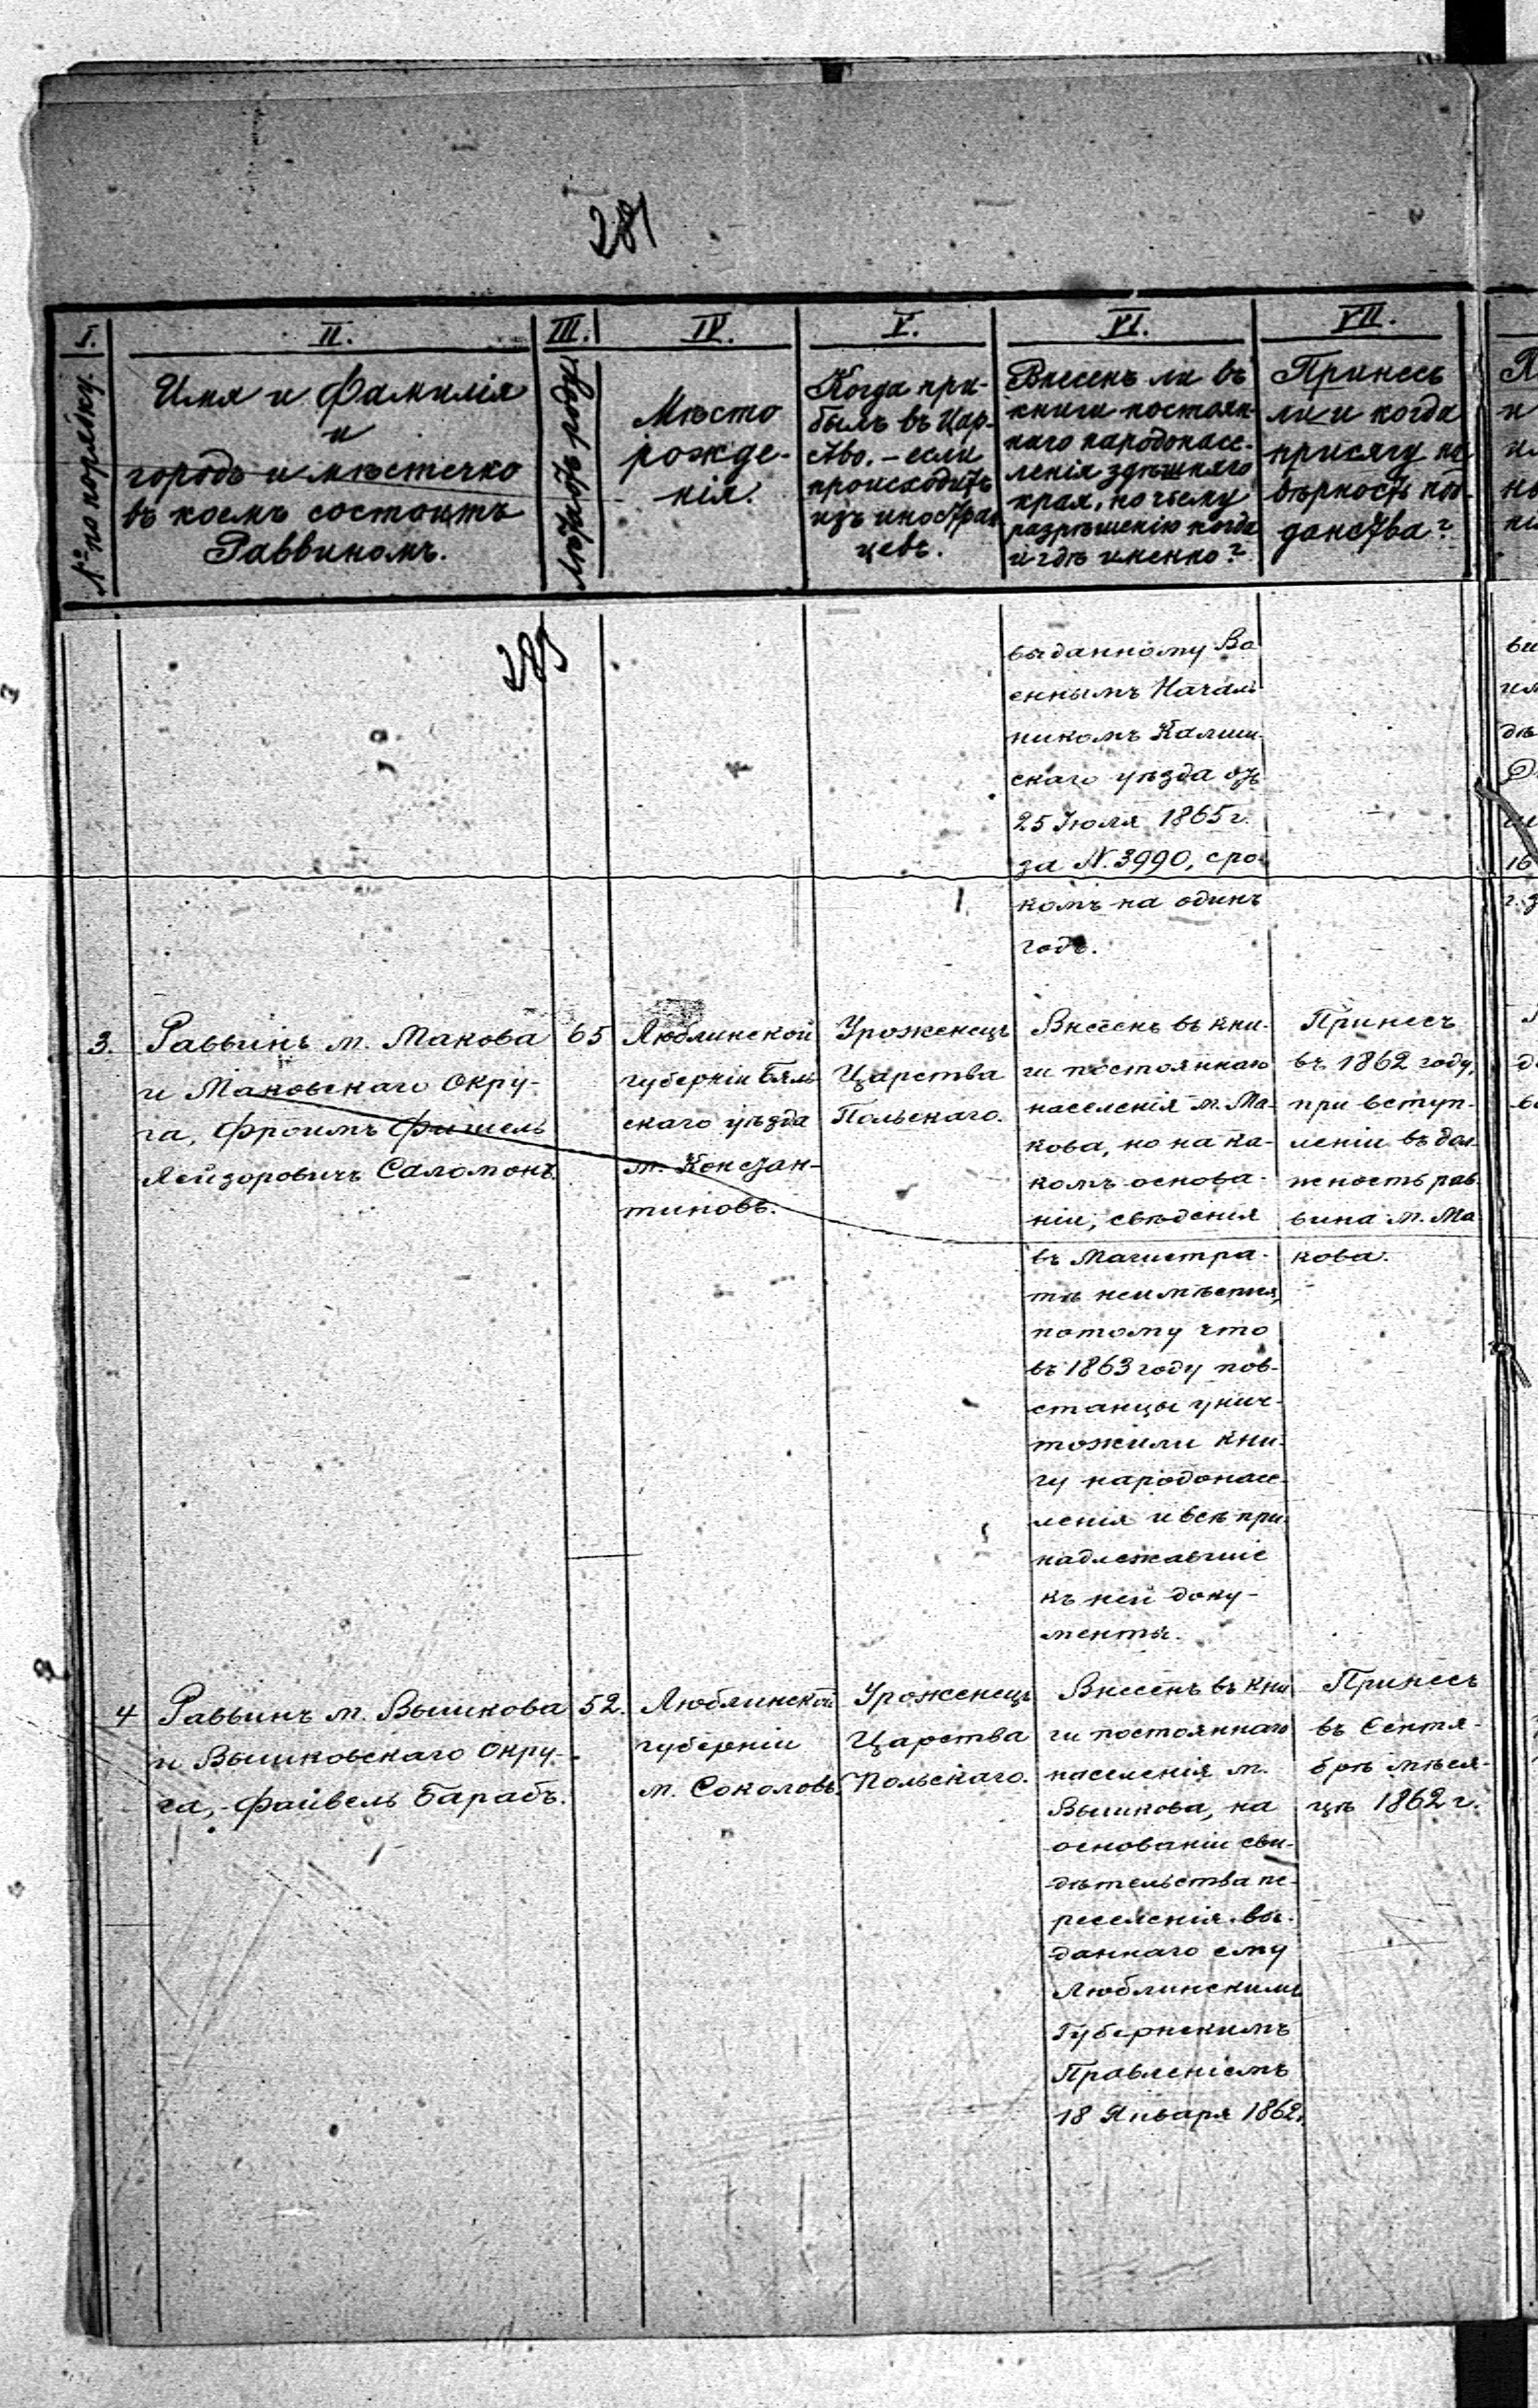 281
I.
II.
III.
IV.
V.
VI.
VII.
№ по порядку.
Имя и Фамилія
и
городъ и мѣстечко
въ коемъ состоитъ
Раввиномъ.
Мѣсто
рожде-
нія.
Когда при-
былъ въ Цар-
ство. – если
происходитъ
изъ иностран-
цевъ.
Внесенъ ли въ
книги постоян-
наго народонасе-
ленія здѣшняго
края, по чьему
разрѣшенію когда
и гдѣ именно?
Принесъ
ли и когда
присягу на
вѣрность под-
данства?
выданному Во
еннымъ Началь
никомъ Калиш-
скаго уѣзда отъ
25 Іюля 1865 г.
за N. 3990, сро-
комъ на одинъ
годъ.
3.
Раввинъ м. Макова
и Маковскаго Окру-
га, Фроимъ Фишель
Лейзоровичъ Саломонъ.
65
Люблинской
губерніи Бяль
скаго уѣзда
м. Констан-
тиновъ.
Уроженецъ
Царства
Польскаго.
Внесенъ въ кни-
ги постояннаго
населенія м. Ма-
кова, но на ка-
комъ основа-
ніи, свѣденія
въ Магистра-
тѣ неимѣется,
потому что
въ 1863 году пов-
станцы унич-
тожили кни-
гу народонасе-
ленія и всѣ при-
надлежавшіе
къ ней доку-
менты.
Принесъ
въ 1862 году,
при вступ-
леніи въ дол
жность рав-
вина м. Ма
кова.
4
Раввинъ м. Вышкова
и Вышковскаго Окру-
га, - Файвель Барабъ.
52.
Люблинской
губерніи
м. Соколовъ.
Уроженецъ
Царства
Польскаго.
Внесенъ въ кни
ги постояннаго
населенія м.
Вышкова, на
основаніи сви-
дѣтельства пе-
реселенія вы-
даннаго ему
Люблинскимъ
Губернскимъ
Правленіемъ
18 Января 1862г.
Принесъ
въ Сентя-
брѣ мѣся-
цѣ 1862 г.